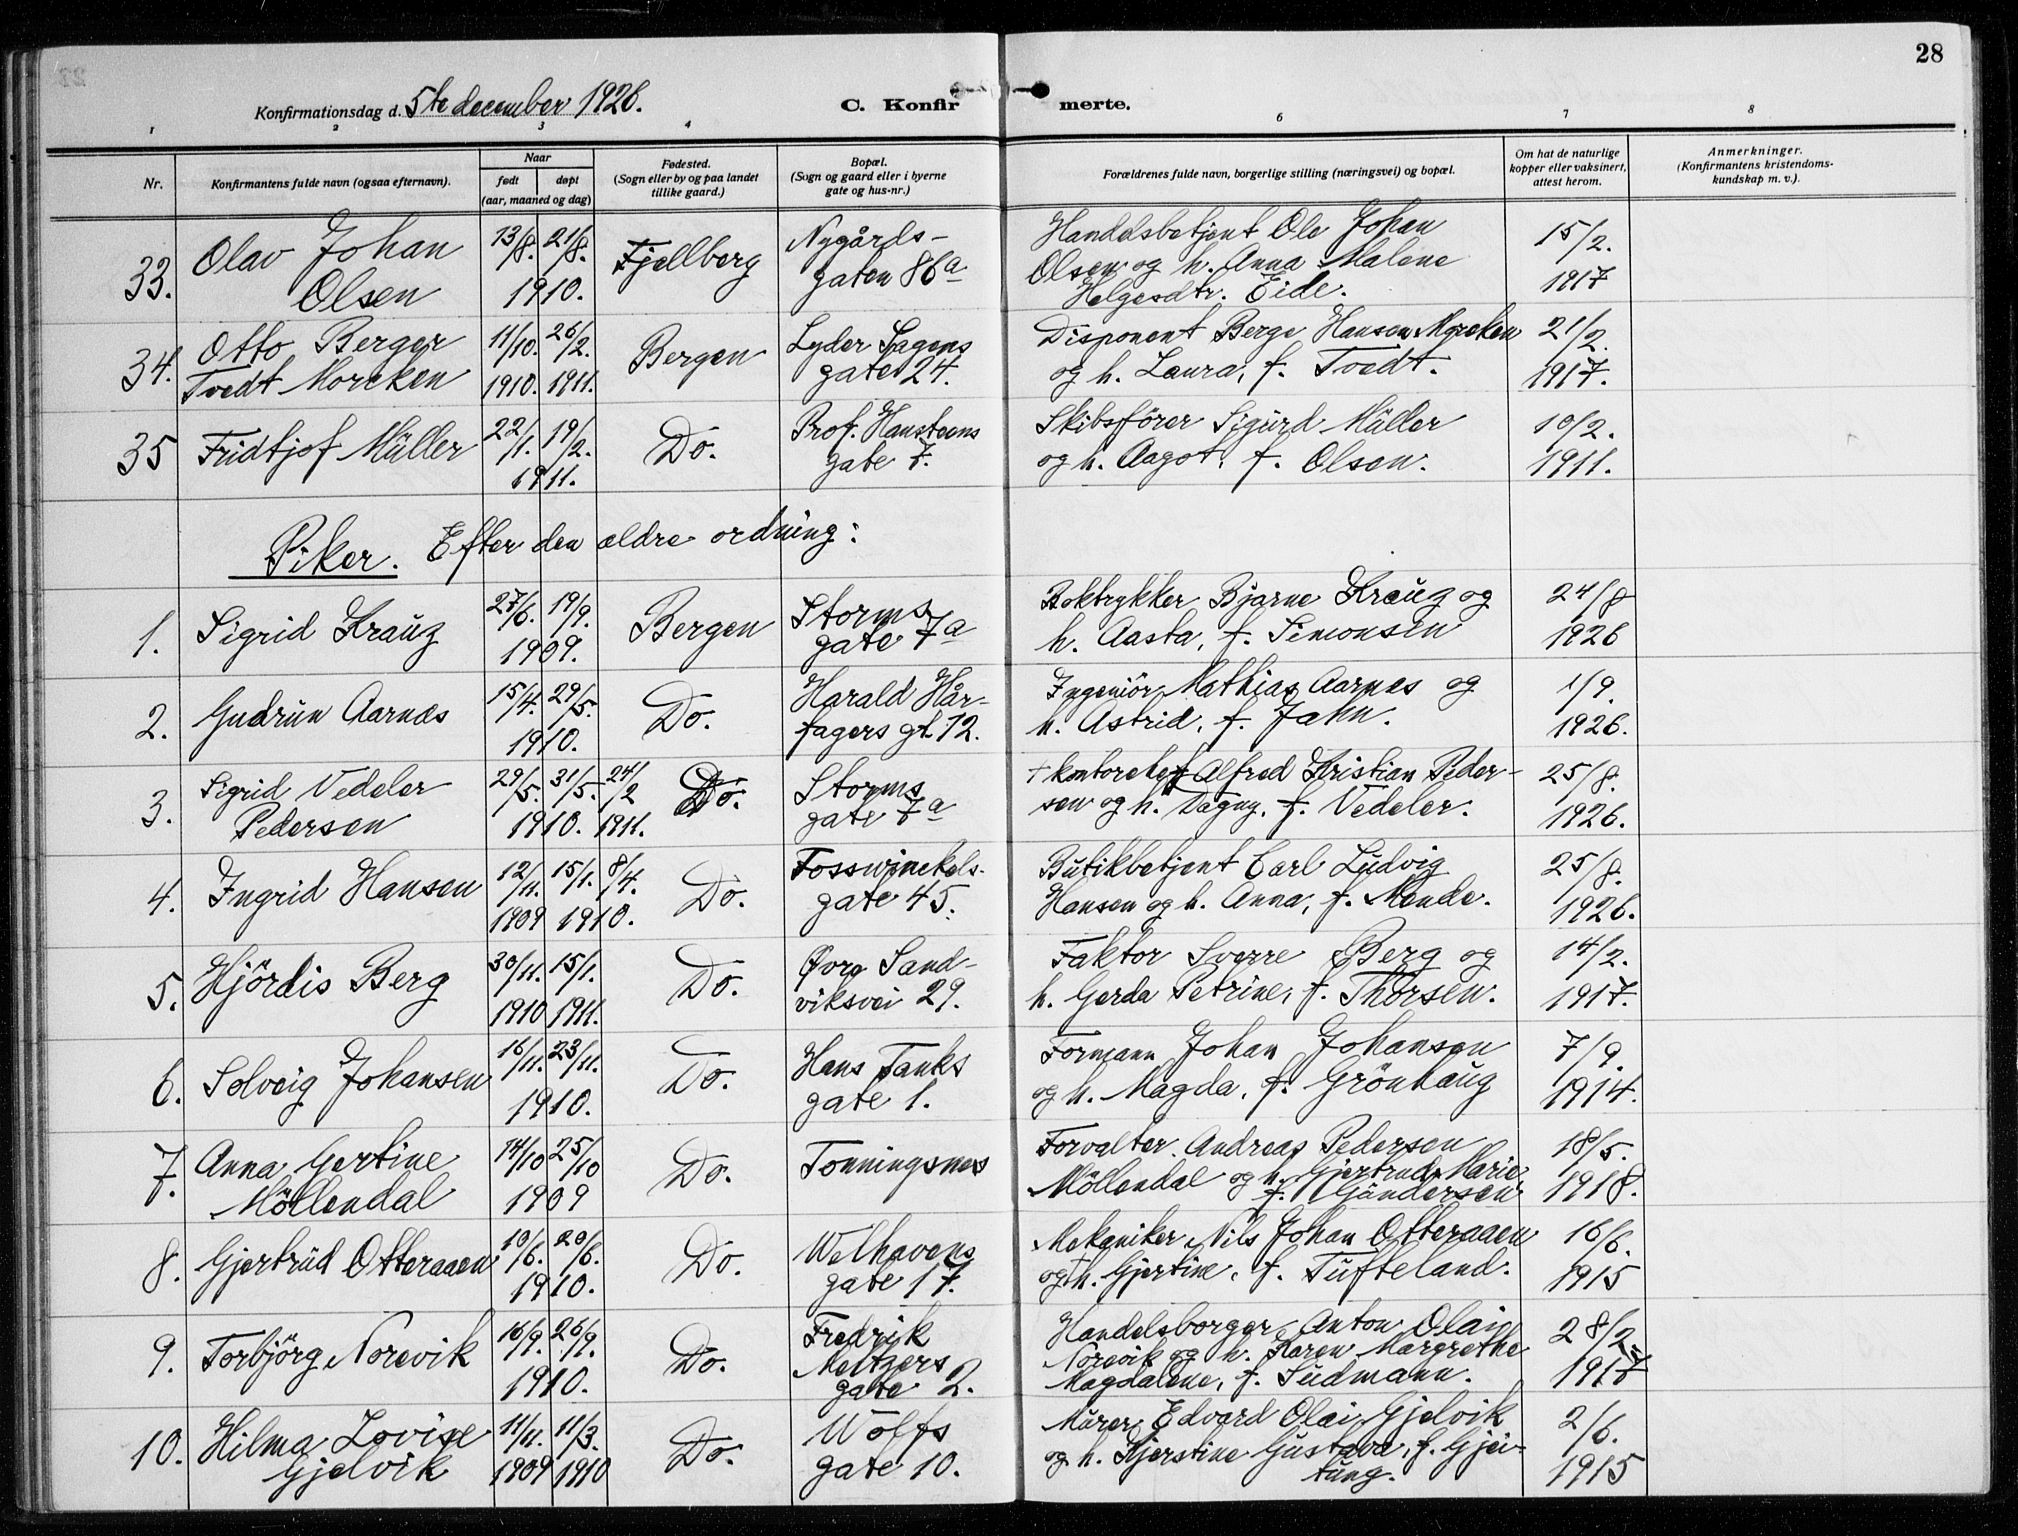 28
Konfirmationsdag d. 5te december 1926.
C. Konfir merte.
1 2 3 4 6 7 8
Nr.
Konfirmantens fulde navn (ogsaa efternavn).
Naar
født døpt
(aar, maaned og dag)
Fødested.
(Sogn eller by og paa landet
tillike gaard.)
Bopæl.
(Sogn og gaard eller i byerne
gate og hus-nr.)
Forældrenes fulde navn, borgerlige stilling (næringsvei) og bopæl.
Om hat de naturlige
kopper eller vaksinert,
attest herom.
Anmerkninger.
(Konfirmantens kristendoms-
kundskap m. v.).
33. Olav Johan 13/8. 21/8. Fjellberg Nygårds- Handelsbetjent Ole Johan 15/2.
Olsen 1910. gaten 86a Olsen og h. Anna Malene 1917
Helgesdtr. Eide.
34. Otto Berger 11/10. 26/2. Bergen Lyder Sagens Disponent Berge Hansen Morcken 21/2.
Tvedt Morcken 1910. 1911. gate 24. og h. Laura, f. Tvedt. 1917.
35 Fridtjof Müller 22/1. 19/2. Do. Prof. Hansteens Skibsfører Sigurd Müller 10/2.
1911. gate 7. og h. Aagot, f. Olsen. 1911.
Piker. Efter den ældre ordning:
1. Sigrid Krauz 27/6. 19/9. Bergen Storms Boktrykker Bjarne Krauz og 24/8
1909. gate 7a h. Aasta, f. Simonsen 1926
2. Gudrun Aarnæs 15/4. 29/5. Do. Harald Hår- Ingeniör Mathias Aarnæs og 1/9.
1910. fagers gt. 12. h. Astrid, f. Jahn. 1926.
3. Sigrid Vedeler 29/5. 31/5. 24/2 Do. Storms † kontorchef Alfred Kristian Peder- 25/8.
Pedersen 1910. 1911. gate 7a sen og h. Dagny, f. Vedeler. 1926.
4. Ingrid Hansen 12/11. 15/1. 8/4. Do. Fosswinckels- Butikbetjent Carl Ludvig 25/8.
1909 1910. gate 45. Hansen og h. Anna, f. Monde. 1926.
5. Hjördis Berg 30/11. 15/1. Do. Øvre Sand- Faktor Sverre Berg og 14/2.
1910 1911. viksvei 29. h. Gerda Petrine, f. Thorsen. 1917.
6. Solveig Johansen 16/11. 23/11. Do. Hans Tanks Formann Johan Johansen 7/9.
1910. gate 1. og h. Magda, f. Grönhaug 1914.
7. Anna Gertine 14/10 25/10 Do. Tonningsnes Forvalter Andreas Pedersen 18/5.
Möllendal 1909 Möllendal og h. Gjertrud Marie 1918.
8. Gjertrud Otteraaen 10/6. 20/6. Do. Welhavens Mekaniker Nils Johan Otteraaen 16/6.
1910. gate 17. og h. Gjertine, f. Tufteland. 1915
9. Torbjörg Norevik 16/9. 26/9. Do. Fredrik Handelsborger Anton Olai 28/2
1910. Meltzers Norevik og h. Karen Margrethe 1917
gate 2. Magdalene, f. Sudmann.
10. Hilma Lovise 11/11. 11/3. Do. Wolffs Murer Edvard Olai Gjelvik 2/6.
Gjelvik 1909 1910 gate 10. og h. Kjerstine Gustava, f. Gjei- 1915
tung.